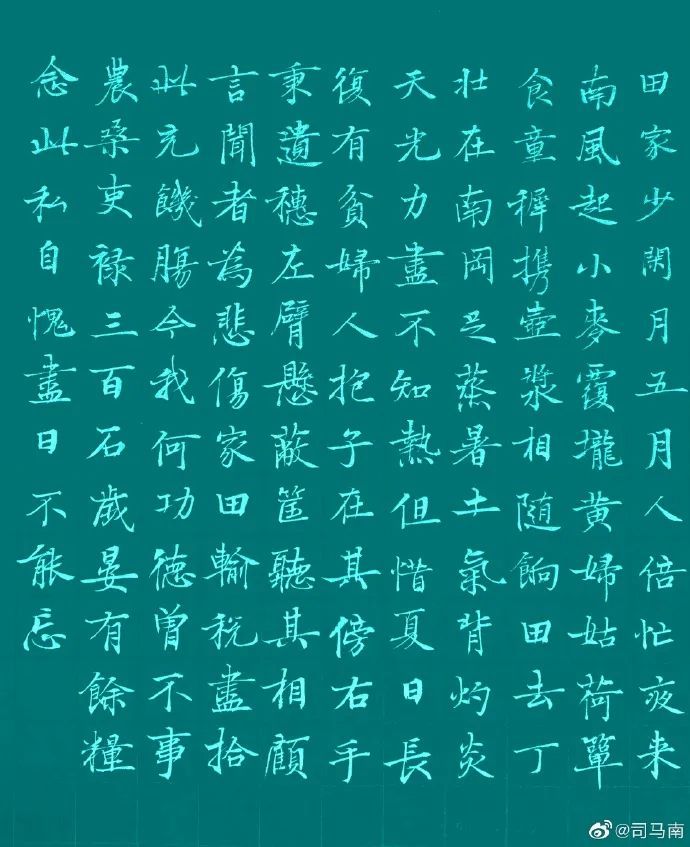 田家少閑月五月人倍忙夜来
南風起小麥覆壠黄婦姑荷簞
食童穉携壺漿相随餉田去丁
壮在南岡足蒸暑土氣背灼炎
天光力盡不知熱但惜夏日長
復有貧婦人抱子在其傍右手
秉遺穗左臂懸蔽筐聽其相顧
言聞者為悲傷家田輸税盡拾
此充饑腸今我何功德曽不事
農桑吏禄三百石歲晏有餘糧
念此私自愧盡日不能忘
@司马南